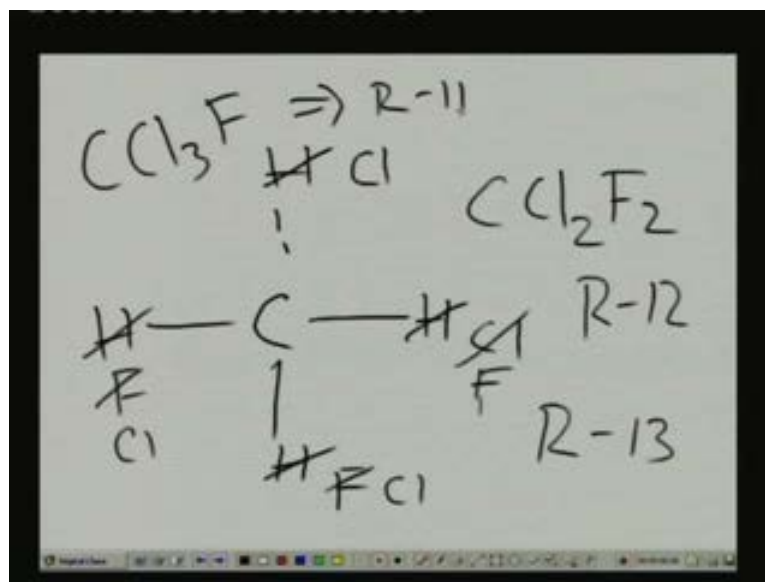 CCl3F => R-11
H Cl
CCl2F2
H C H Cl
F F
Cl
R-12
H F Cl
R-13